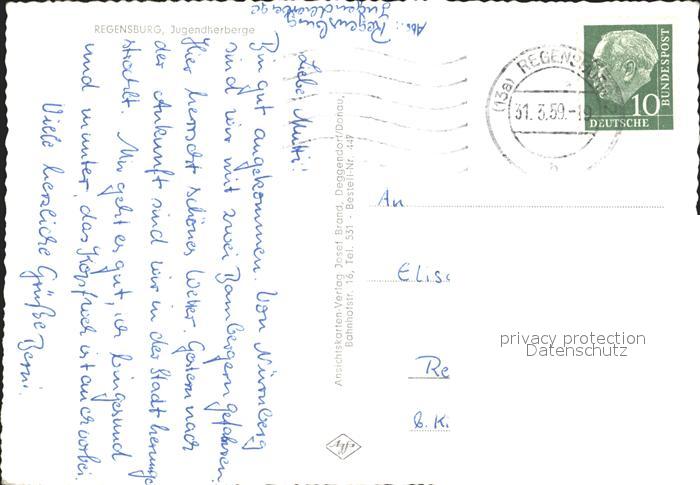 REGENSBURG, Jugendherberge
Abs.: Regensburg
Jugendherberge
Liebe Mutti!
Bin gut angekommen. Von Nürnberg
sind wir mit zwei Bambergern gefahren.
Hier herrscht schönes Wetter. Gestern nach
der Ankunft sind wir in der Stadt herumge
strahlt. Mir geht es gut, ich bin gesund
und munter, das Kopfweh ist auch vorbei.
Viele herzliche Grüße Berni.
Ansichtskarten-Verlag Josef Brand, Deggendorf/Donau,
Bahnhofstr. 16, Tel. 531 - Bestell-Nr. 447
(13a) REGENSBURG
31.3.59.-19
b
10
DEUTSCHE
BUNDESPOST
An
Elisc
Re
b. Ki
privacy protection
Datenschutz